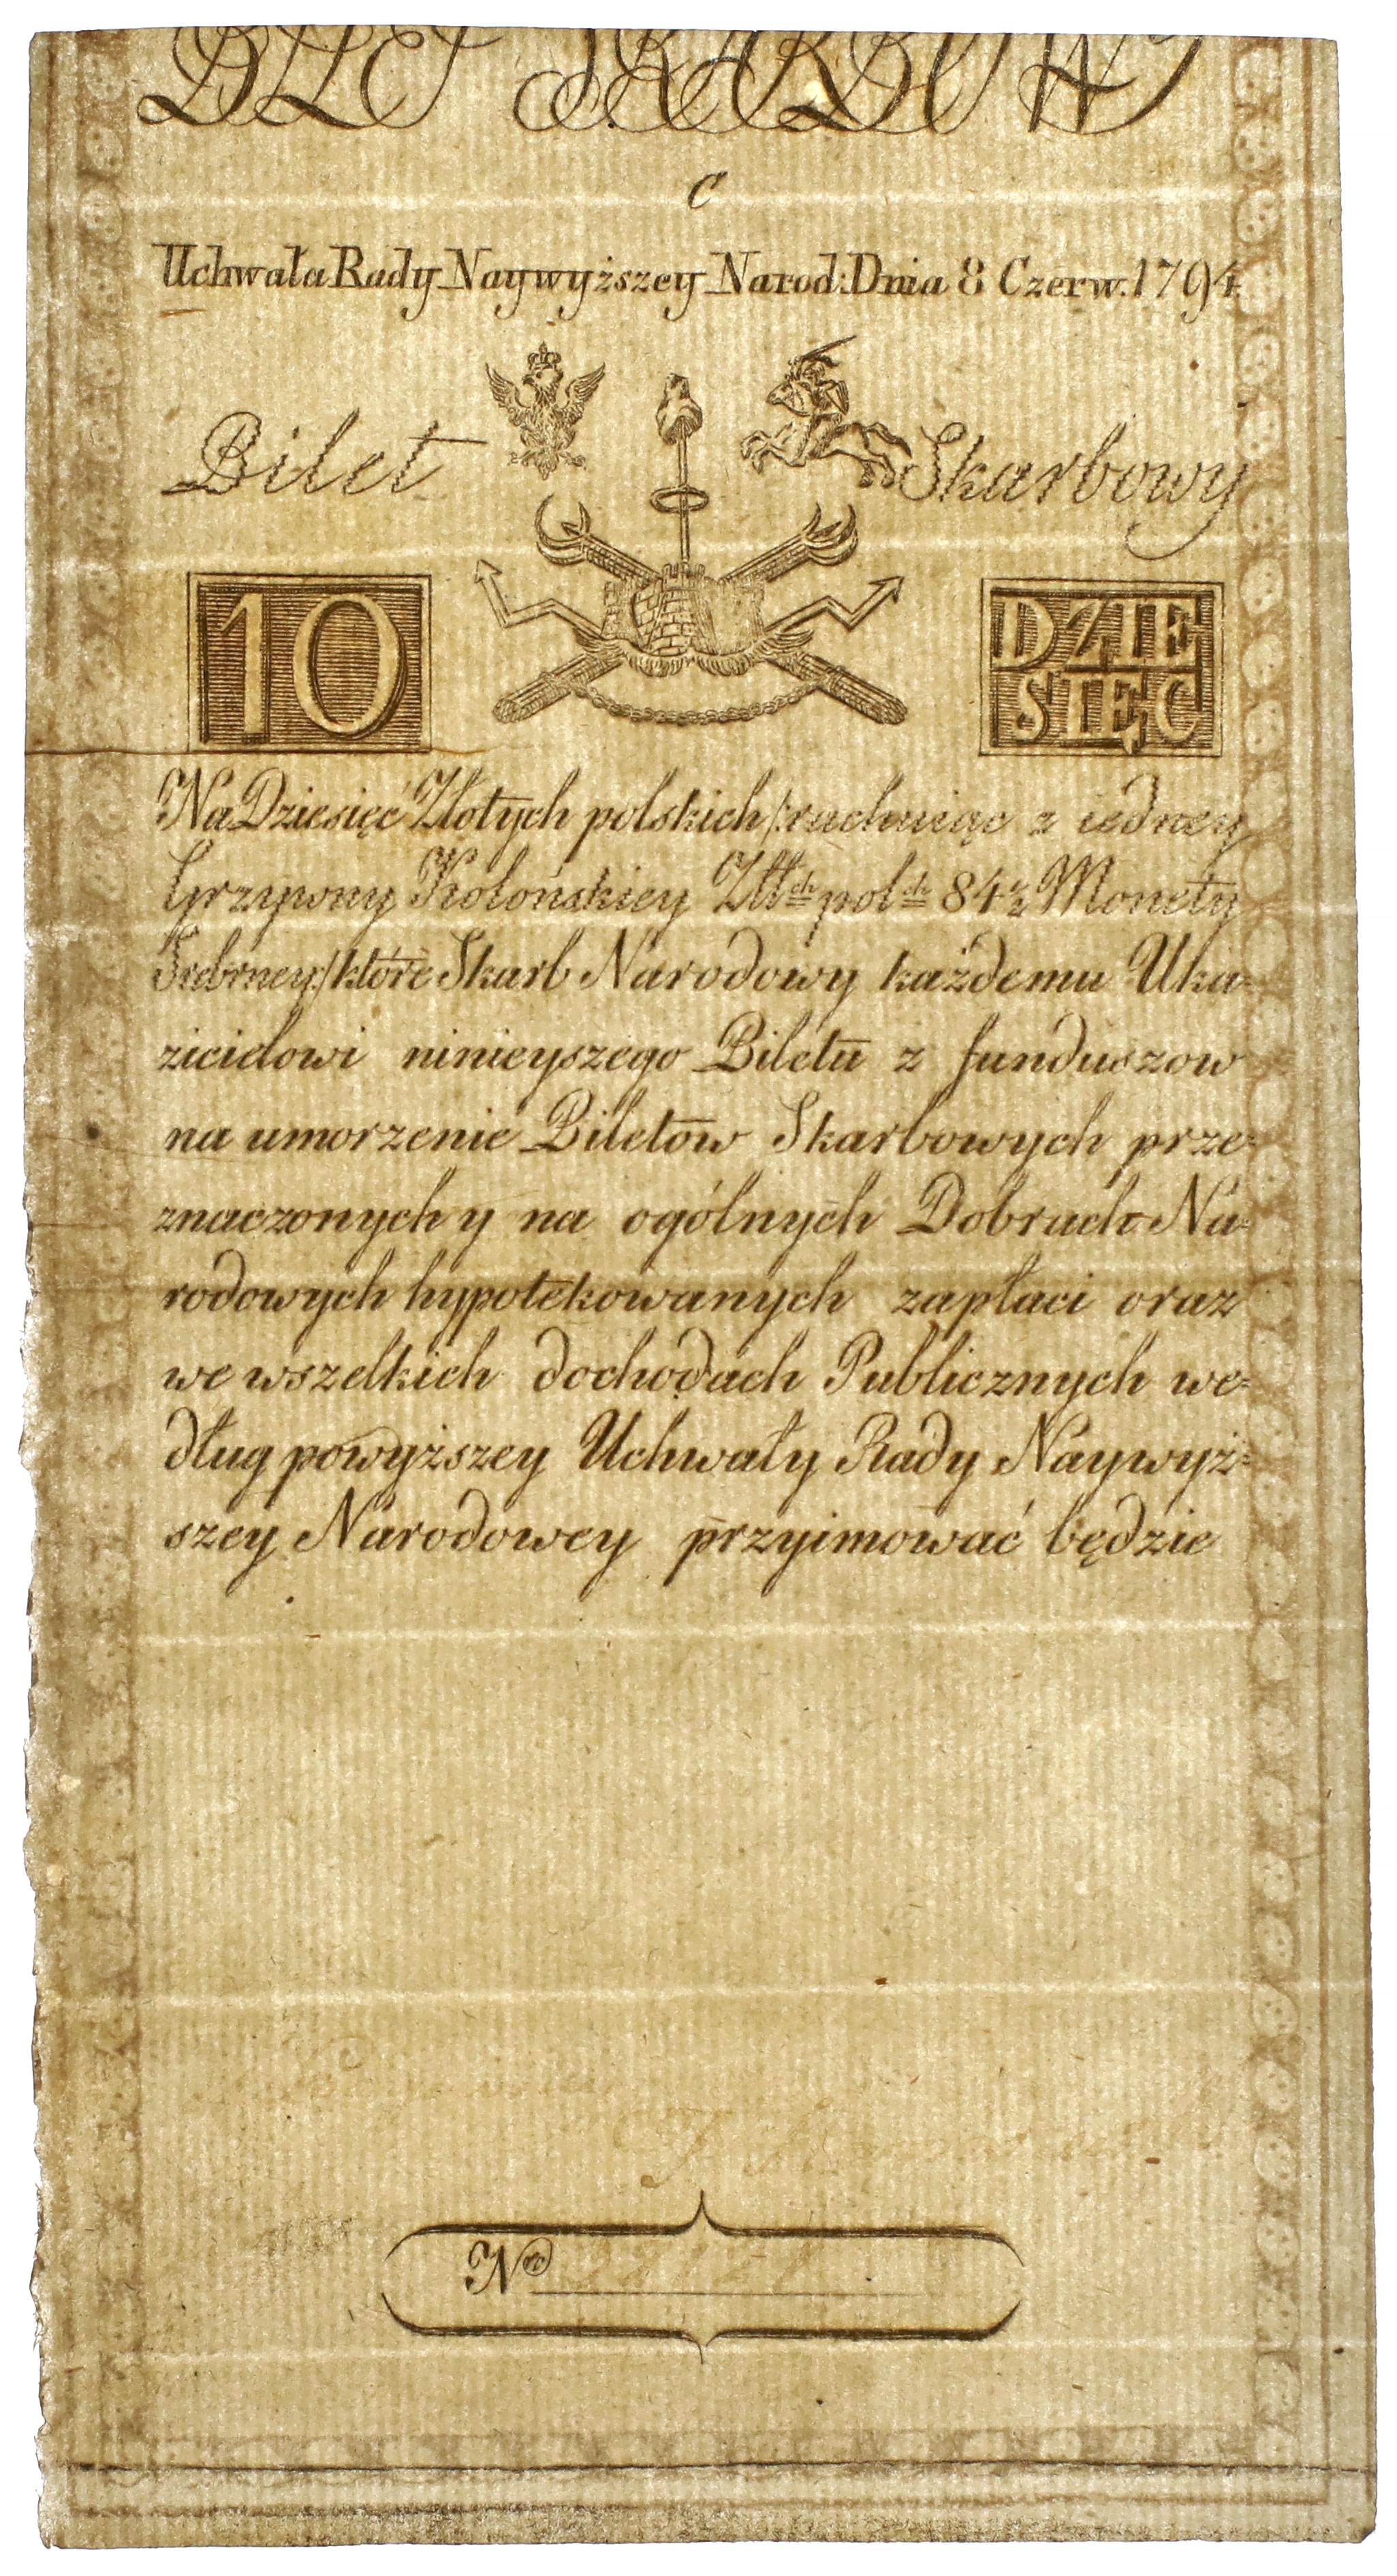 BILET SKARBOWY
C
Uchwała Rady Naywyższey Narod: Dnia 8 Czerw. 1794.
Bilet Skarbowy
10
DZIE
SIĘC
Na Dziesięć Złotych polskich /:rachuiąc z iedney
Grzywny Kolońskiey Złł^ch pol^ch 84½ Monety
Srebrney:/ które Skarb Narodowy każdemu Uka=
zicielowi ninieyszego Biletu z funduszow
na umorzenie Biletow Skarbowych prze=
znaczonych y na ogólnych Dobrach Na=
rodowych hypotekowanych zapłaci oraz
we wszelkich dochodach Publicznych we=
dług powyższey Uchwały Rady Naywyż=
szey Narodowey przyimować będzie
N<sup>ro</sup>